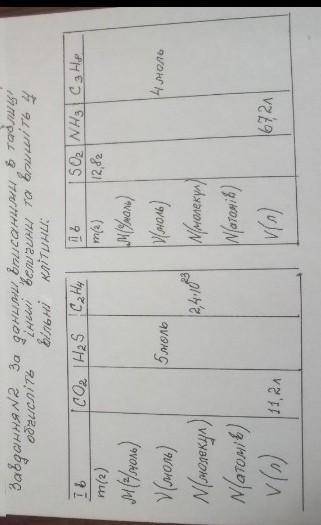 Завдання №2 За даними вписаними в таблиці
обчисліть інші величини та впишіть у
вільні клітини.
I в | CO2 | H2S | C2H4
m(г)
M(г/моль)
ν(моль) 5 моль
N(молекул) 2,4·10²³
N(атомів)
V(л) 11,2л
II в | SO2 | NH3 | C3H8
m(г) 12,8г
M(г/моль)
ν(моль) 4 моль
N(молекул)
N(атомів)
V(л) 67,2л